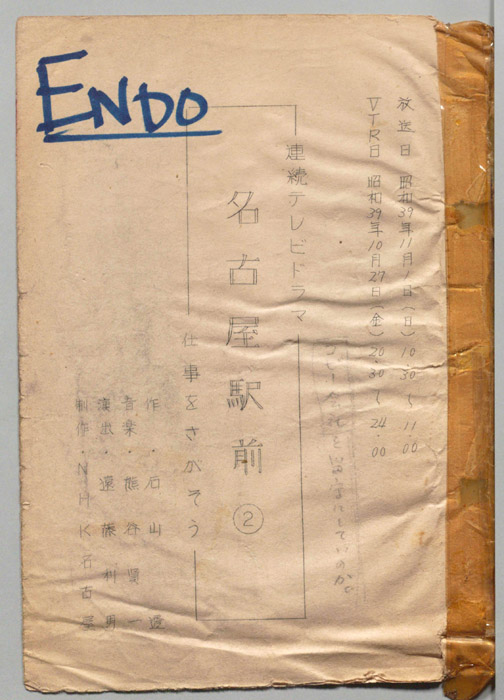 ENDO
放送日 昭和39年11月1日(日)10.30〜11.00
VTR日 昭和39年10月27日(金)20.30〜24.00
連続テレビドラマ
名古屋駅前 ②
仕事をさがそう
作・石山透
音楽・熊谷賢一
演出・遠藤利男
制作・NHK名古屋